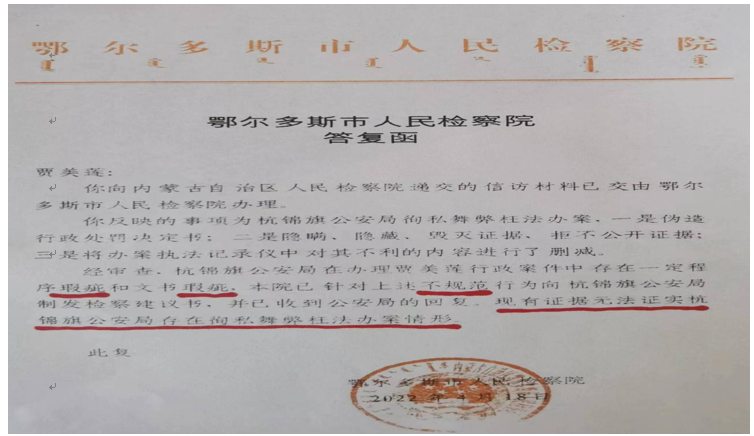 鄂尔多斯市人民检察院
鄂尔多斯市人民检察院
答复函
贾美莲:
你向内蒙古自治区人民检察院递交的信访材料已交由鄂尔
多斯市人民检察院办理。
你反映的事项为杭锦旗公安局徇私舞弊枉法办案，一是伪造
行政处罚决定书；二是隐瞒、隐藏、毁灭证据，拒不公开证据；
三是将办案执法记录仪中对其不利的内容进行了删减。
经审查，杭锦旗公安局在办理贾美莲行政案件中存在一定程
序瑕疵和文书瑕疵，本院已针对上述不规范行为向杭锦旗公安局
制发检察建议书，并已收到公安局的回复。现有证据无法证实杭
锦旗公安局存在徇私舞弊枉法办案情形。
此复
鄂尔多斯市人民检察院
2022年4月18日